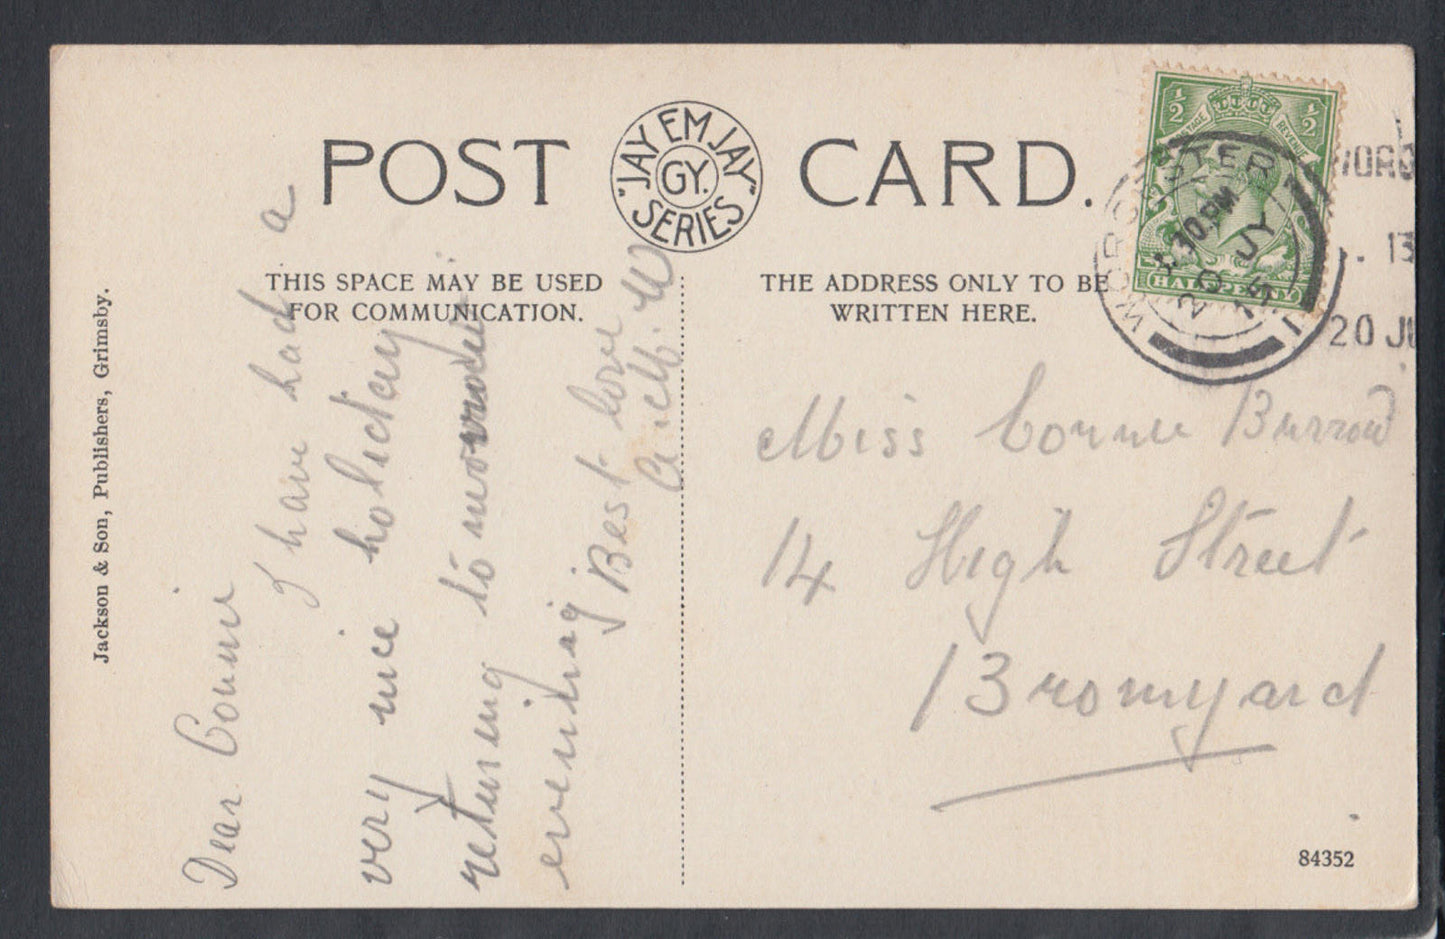 POST CARD.
"JAY EM JAY" SERIES
GY.
THIS SPACE MAY BE USED
FOR COMMUNICATION.
THE ADDRESS ONLY TO BE
WRITTEN HERE.
Jackson & Son, Publishers, Grimsby.
Dear Connie
I have had a
very nice holiday
returning to
evening
Best love
Miss Connie Burrow
14 High Street
Bromyard
½ ½
POSTAGE REVENUE
HALFPENNY
WORCESTER
.30 PM
20 JY
15
WORC
. 13
20 JU
84352